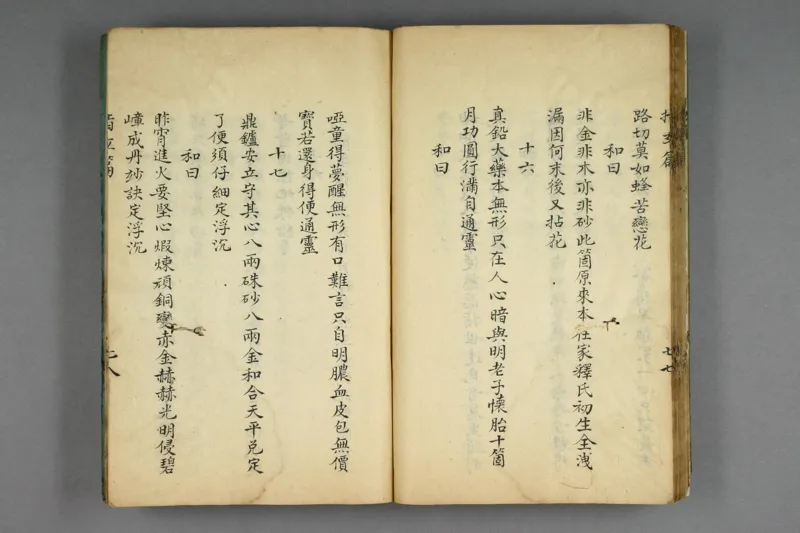 路切莫如蜂苦戀花
和曰
非金非木亦非砂此箇原來本在家釋氏初生全洩
漏因何末後又拈花
十六
真鉛大藥本無形只在人心暗與明老子懷胎十箇
月功圓行滿自通靈
和曰
啞童得夢醒無形有口難言只自明膿血皮包無價
寶若還身得便通靈
十七
鼎鑪安立守其心八兩硃砂八兩金和合天平兌定
了便須仔細定浮沉
和曰
昨宵進火要堅心煅煉頑銅變赤金赫赫光明侵碧
嶂成丹妙訣定浮沉